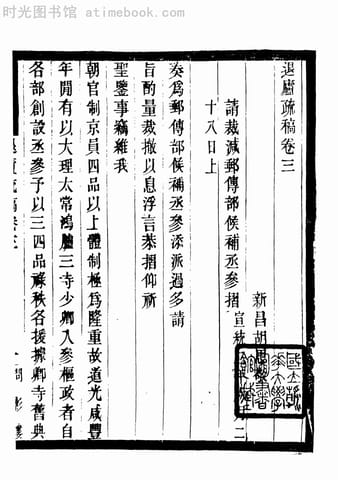 时光图书馆 - atimebook.com
退廬疏稿卷三
新昌胡思
請裁減郵傳部候補丞參摺 宣統 月二
十八日上
奏為郵傳部候補丞參添派過多請
旨酌量裁撤以息浮言恭摺仰祈
聖鑒事竊維我
朝官制京員四品以上體制極為隆重故道光咸豐
年間有以大理太常鴻臚三寺少卿入參樞政者自
各部創設丞參予以三四品祿秩各援據卿寺舊典